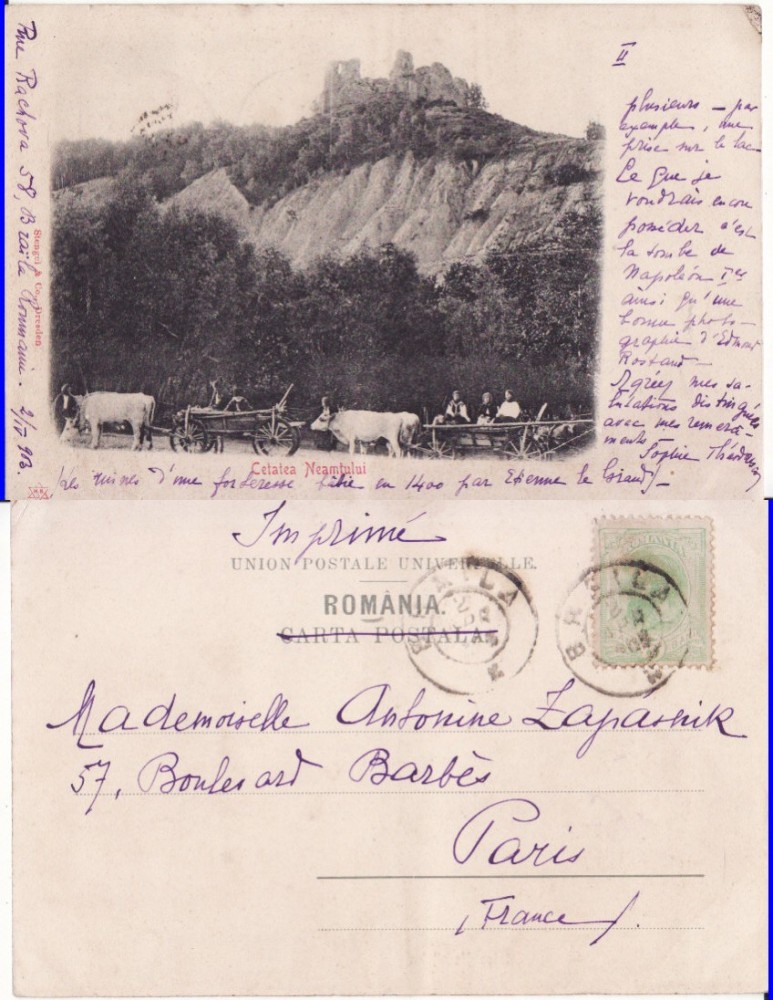 II
plusieurs – par
exemple, une
prise sur le lac
Ce que je
voudrais encore
posséder c'est
la tombe de
Napoléon Ier
ainsi qu'une
bonne photo-
graphie d'Edmond
Rostand –
Agréez mes sa-
lutations distinguées
avec mes remercî-
ments
Sophie
Rue Rachova 58, Braïla Roumanie. 2/IV 903.
Stengel & Co., Dresden
Cetatea Neamțului
(les ruines d'une forteresse bâtie en 1400 par Etienne le Grand) –
Imprimé
UNION POSTALE UNIVERSELLE.
ROMÂNIA.
CARTA POSTALA
BRAILA
BRAILA
Mademoiselle Antonine Zapasnik
57, Boulevard Barbès
Paris
(France).